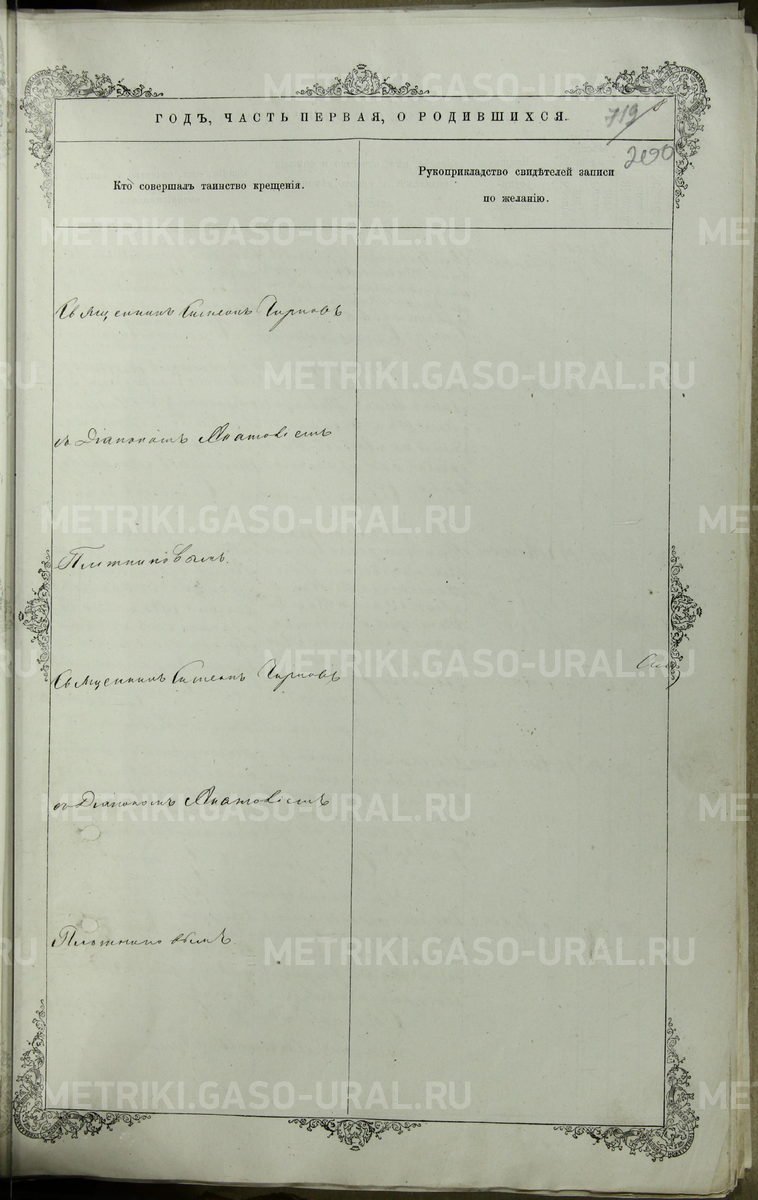 ГОДЪ, ЧАСТЬ ПЕРВАЯ, О РОДИВШИХСЯ.
719
290
Кто совершалъ таинство крещенія.
Рукоприкладство свидѣтелей записи
по желанію.
Священникъ Симеонъ
съ Діакономъ
Плотниковымъ.
Священникъ Симеонъ
съ Діакономъ
Плотниковымъ
METRIKI.GASO-URAL.RU